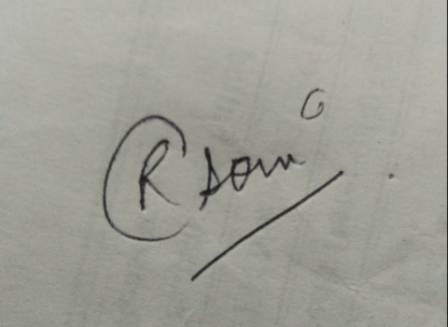 R Soni